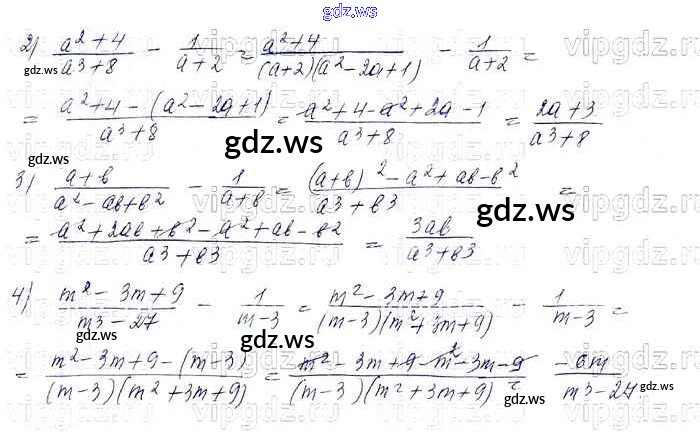 gdz.ws
2) \frac{a^2+4}{a^3+8} - \frac{1}{a+2} = \frac{a^2+4}{(a+2)(a^2-2a+1)} - \frac{1}{a+2} =
gdz.ws
= \frac{a^2+4-(a^2-2a+1)}{a^3+8} = \frac{a^2+4-a^2+2a-1}{a^3+8} = \frac{2a+3}{a^3+8}
gdz.ws
gdz.ws
3) \frac{a+b}{a^2-ab+b^2} - \frac{1}{a+b} = \frac{(a+b)^2-a^2+ab-b^2}{a^3+b^3} =
gdz.ws
= \frac{a^2+2ab+b^2-a^2+ab-b^2}{a^3+b^3} = \frac{3ab}{a^3+b^3}
4) \frac{m^2-3m+9}{m^3-27} - \frac{1}{m-3} = \frac{m^2-3m+9}{(m-3)(m^2+3m+9)} - \frac{1}{m-3} =
gdz.ws
= \frac{m^2-3m+9-(m-3)}{(m-3)(m^2+3m+9)} = \frac{m^2-3m+9-m^2-3m-9}{(m-3)(m^2+3m+9)} = \frac{-6m}{m^3-27}
gdz.ws
gdz.ws
vipgdz.ws